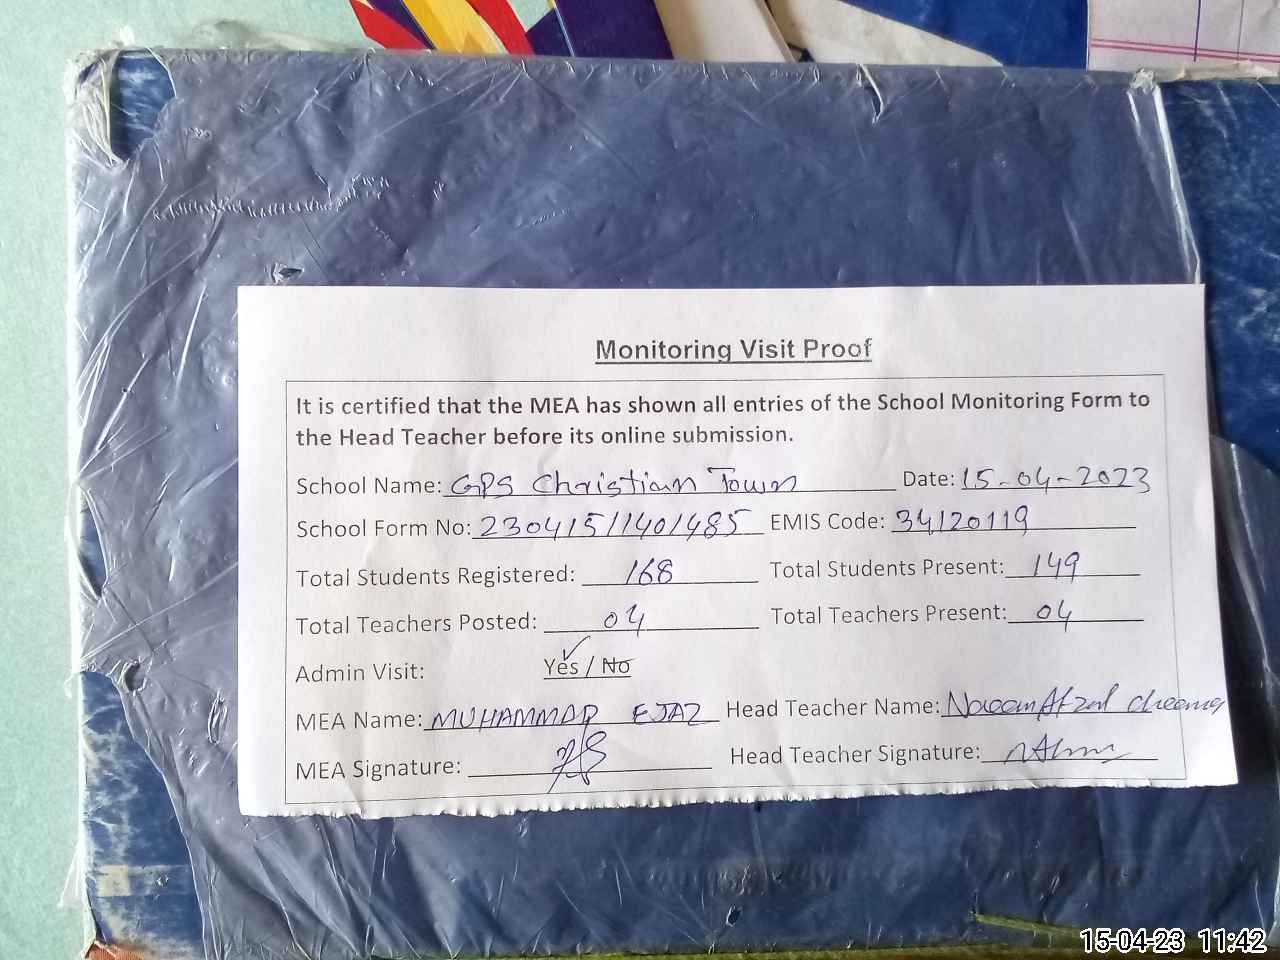 Monitoring Visit Proof
It is certified that the MEA has shown all entries of the School Monitoring Form to
the Head Teacher before its online submission.
School Name: GPS Christian Town Date: 15-04-2023
School Form No: 230415/140/485 EMIS Code: 34120119
Total Students Registered: 168 Total Students Present: 149
Total Teachers Posted: 04 Total Teachers Present: 04
Admin Visit: Yes / No
MEA Name: MUHAMMAD EJAZ Head Teacher Name: Naeem Afzal cheema
MEA Signature: Head Teacher Signature:
15-04-23 11:42